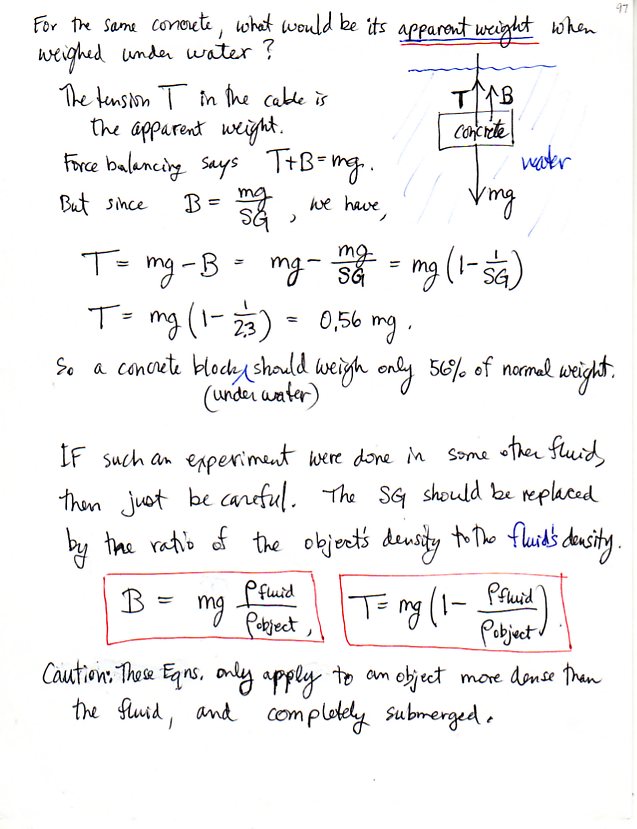 97
For the same concrete, what would be its apparent weight when
weighed under water?
The tension T in the cable is
the apparent weight.
T B
concrete
water
mg
Force balancing says T+B=mg.
But since B = mg/SG, we have,
T = mg - B = mg - mg/SG = mg (1 - 1/SG)
T = mg (1 - 1/2.3) = 0.56 mg.
So a concrete block (under water) should weigh only 56% of normal weight.
IF such an experiment were done in some other fluid,
then just be careful. The SG should be replaced
by the ratio of the object's density to the fluid's density.
B = mg ρfluid/ρobject, T = mg (1 - ρfluid/ρobject).
Caution: These Eqns. only apply to an object more dense than
the fluid, and completely submerged.